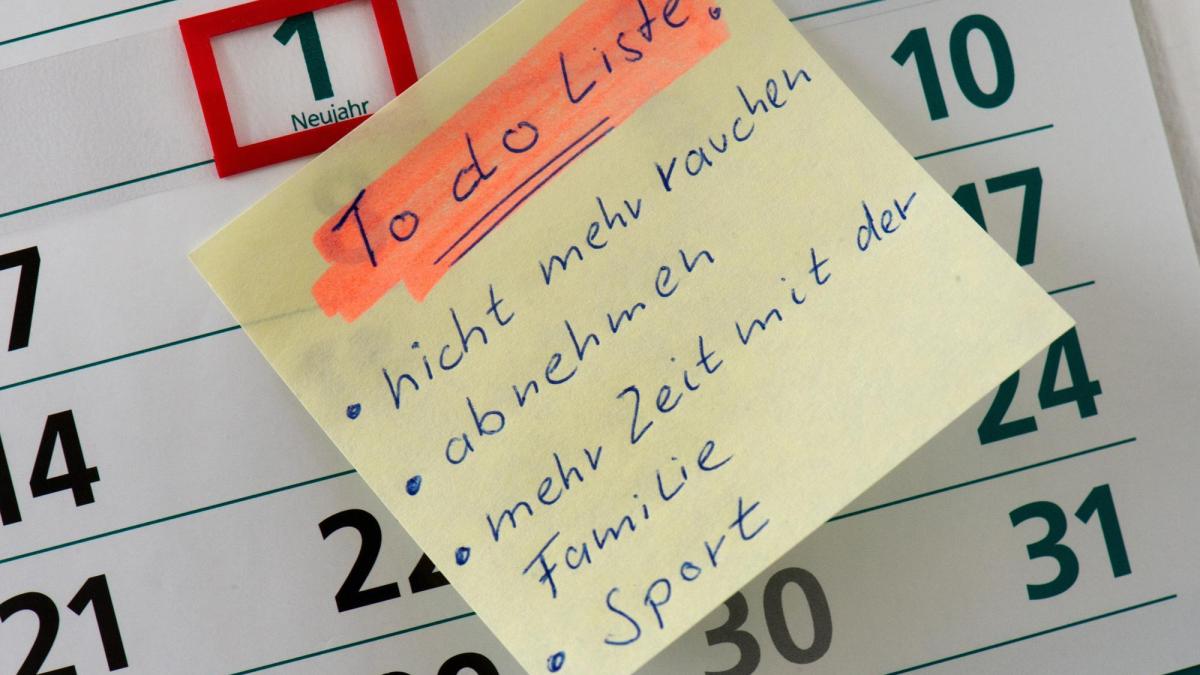 1
Neujahr
10
7
17
14
24
21
22
30
31
To do Liste:
• nicht mehr rauchen
• abnehmen
• mehr Zeit mit der
Familie
• Sport